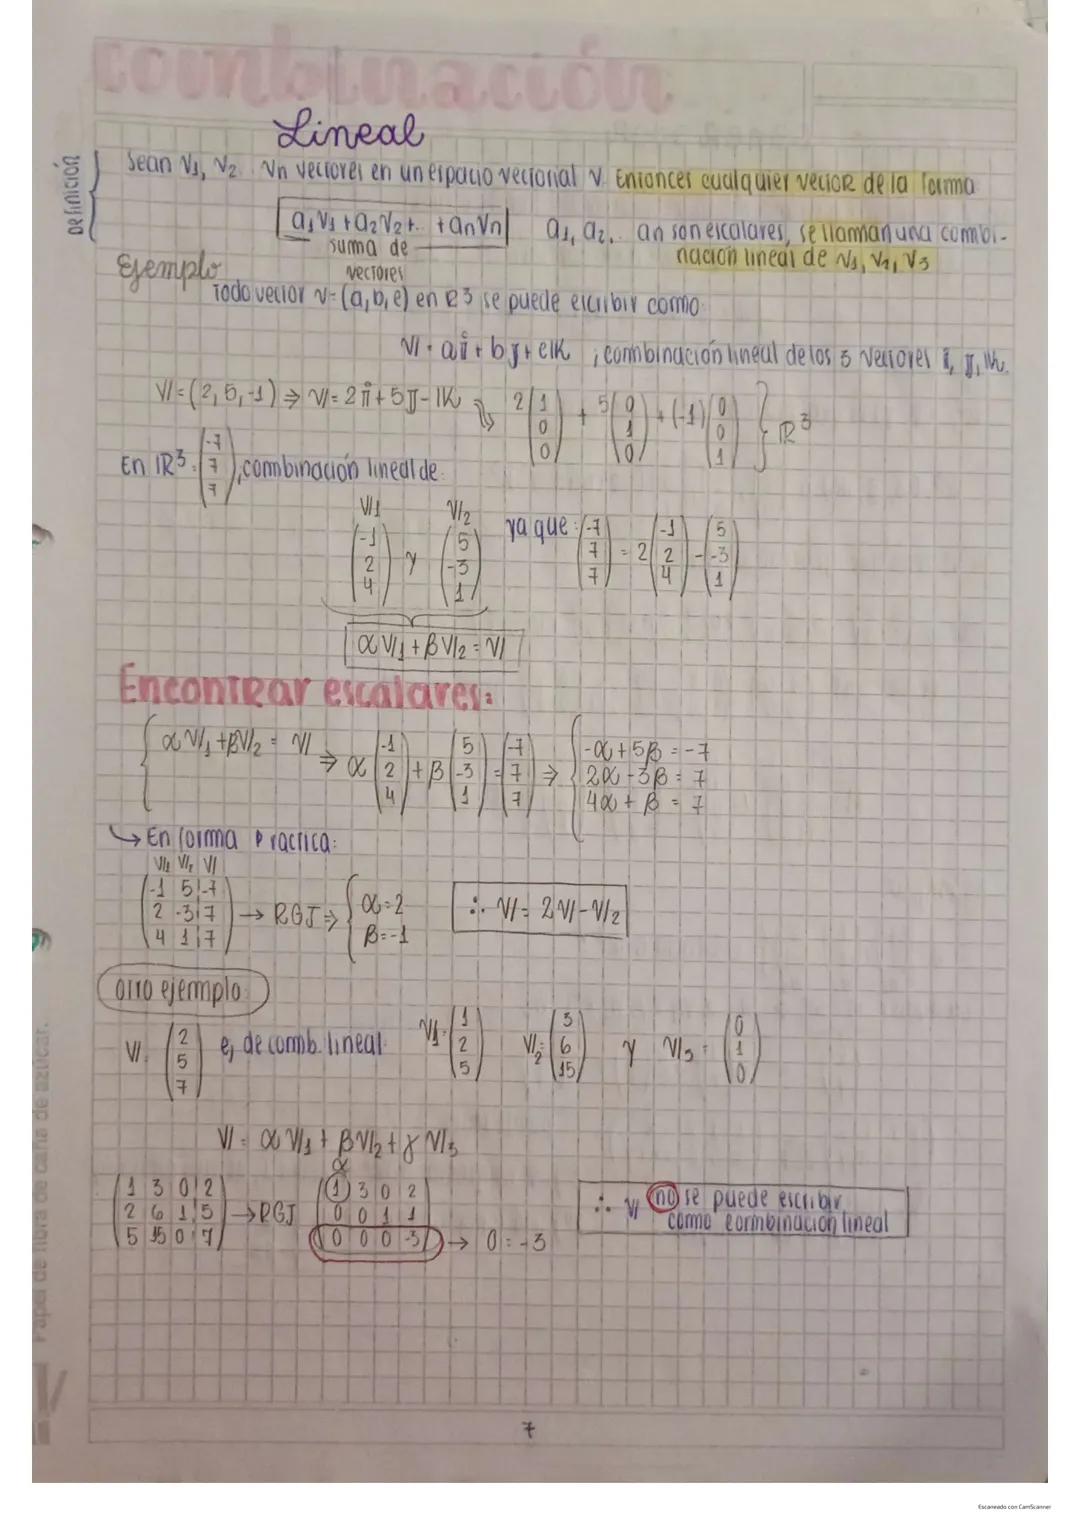 combinación
Lineal
Definición
Sean V1, V2 .. Vn vectores en un espacio vectorial V. Entonces cualquier vector de la forma
a1V1+a2V2+.. +anVn   a1, a2,.. an son escalares, se llaman una combi-
suma de vectores
nación lineal de V1, V2, V3
Ejemplo
Todo vector v=(a,b,c) en R3 se puede escribir como:
V = ai + bj + cK ; combinación lineal de los 3 vectores i, j, K.
V=(2,5,-1) ⇒ V=2i+5j-1K ⇒ 2(1 0 0) + 5(0 1 0) + (-1)(0 0 1) } R3
En R3: (-7 7 7), combinación lineal de:
V1 V2
(-1 2 4) y (5 -3 1)   ya que: (-7 7 7) = 2(-1 2 4) - (5 -3 1)
αV1+βV2=V
Encontrar escalares:
αV1+βV2 = V ⇒ α(-1 2 4) + β(5 -3 1) = (-7 7 7) ⇒ { -α+5β = -7
2α-3β = 7
4α+β = 7
↳ En forma Practica:
V1 V2 V
-1 5 -7
2 -3 7 → RGJ ⇒ { α=2   ∴ V= 2V-V2
4 1 7   β=-1
otro ejemplo:
V = (2 5 7) ej de comb. lineal V1=(1 2 5)   V2=(3 6 15) y V3=(0 1 0)
V = αV1+βV2+γV3
α
1 3 0 2   1 3 0 2
2 6 1 5 → RGJ 0 0 1 1   ∴ V no se puede escribir
5 15 0 7   0 0 0 -3 → 0=-3   como combinación lineal
Papel de fibra de caña de azúcar.
7
Escaneado con CamScanner